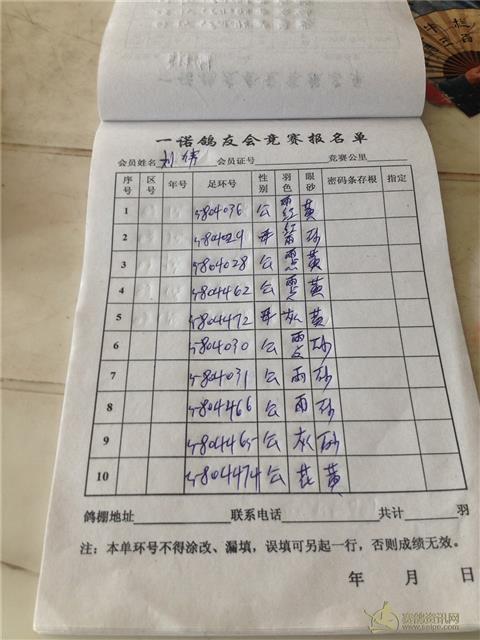 一诺鸽友会竞赛报名单
会员姓名 刘伟 会员证号 竞赛公里
序号 区号 年号 足环号 性别 羽色 眼砂 密码条存根 指定
1 5804036 公 雨红 黄
2 5804029 母 红雨 砂
3 5804028 公 雨点 黄
4 5804462 公 雨点 黄
5 5804472 母 灰 黄
6 5804030 公 雨点 砂
7 5804031 公 雨 砂
8 5804466 公 雨 砂
9 5804465 公 灰 砂
10 5804474 公 花 黄
鸽棚地址 联系电话 共计 羽
注：本单环号不得涂改、漏填，误填可另起一行，否则成绩无效。
年 月 日
赛鸽资讯网
www.saige.com